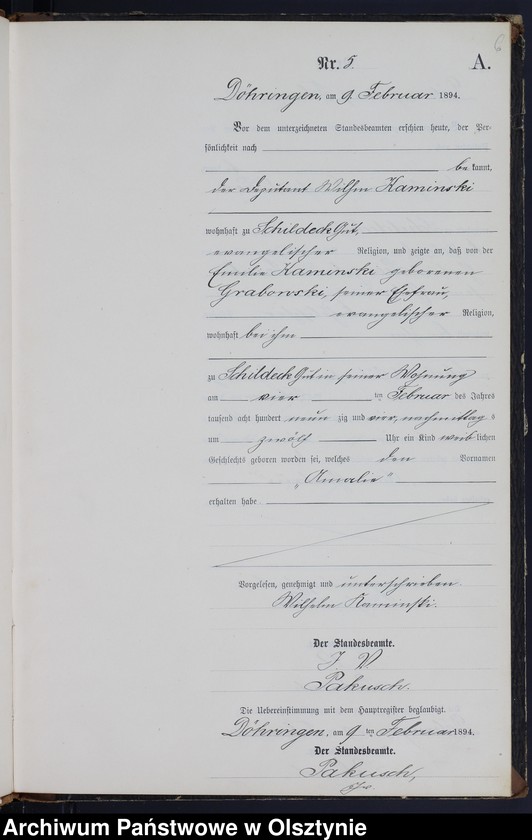 6
Nr. 5.
A.
Döhringen, am 9. Februar 1894.
Vor dem unterzeichneten Standesbeamten erschien heute, der Per-
sönlichkeit nach
be kannt,
der Deputant Wilhm Kaminski
wohnhaft zu Schildeck Gut,
evangelischer Religion, und zeigte an, daß von der
Emilie Kaminski geborenen
Grabowski, seiner Ehefrau,
evangelischer Religion,
wohnhaft bei ihm
zu Schildeck Gut in seiner Wohnung
am vier ten Februar des Jahres
tausend acht hundert neun zig und vier, nachmittag s
um zwölf Uhr ein Kind weib lichen
Geschlechts geboren worden sei, welches den Vornamen
„Amalie“
erhalten habe.
Vorgelesen, genehmigt und unterschrieben
Wilhelm Kaminski.
Der Standesbeamte.
J. V.
Pakusch.
Die Uebereinstimmung mit dem Hauptregister beglaubigt.
Döhringen, am 9 ten Februar 1894.
Der Standesbeamte.
Pakusch,
Archiwum Państwowe w Olsztynie